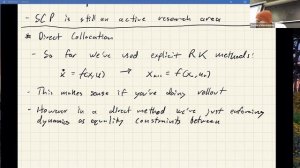 - SCP is still an active research area
* Direct Collocation
- So far we've used explicit RK methods:
ẋ = f(x,u) → xₙ₊₁ = f(xₙ,uₙ)
- This makes sense if you're doing rollout
- However in a direct method we're just enforcing
dynamics as equality constraints between